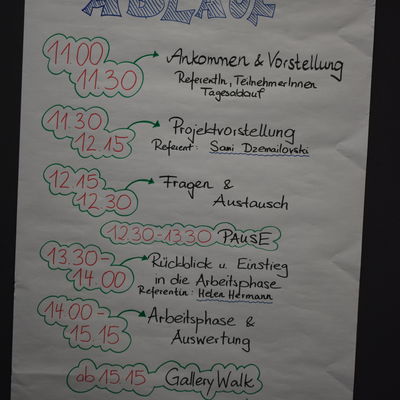 ABLAUF
11.00
11.30
Ankommen & Vorstellung
ReferentIn, TeilnehmerInnen
Tagesablauf
11.30
12.15
Projektvorstellung
Referent: Sami Dzemailovski
12.15
12.30
Fragen &
Austausch
12.30-13.30 PAUSE
13.30-
14.00
Rückblick u. Einstieg
in die Arbeitsphase
Referentin: Helen Hermann
14.00-
15.15
Arbeitsphase &
Auswertung
ab 15.15 Gallery Walk